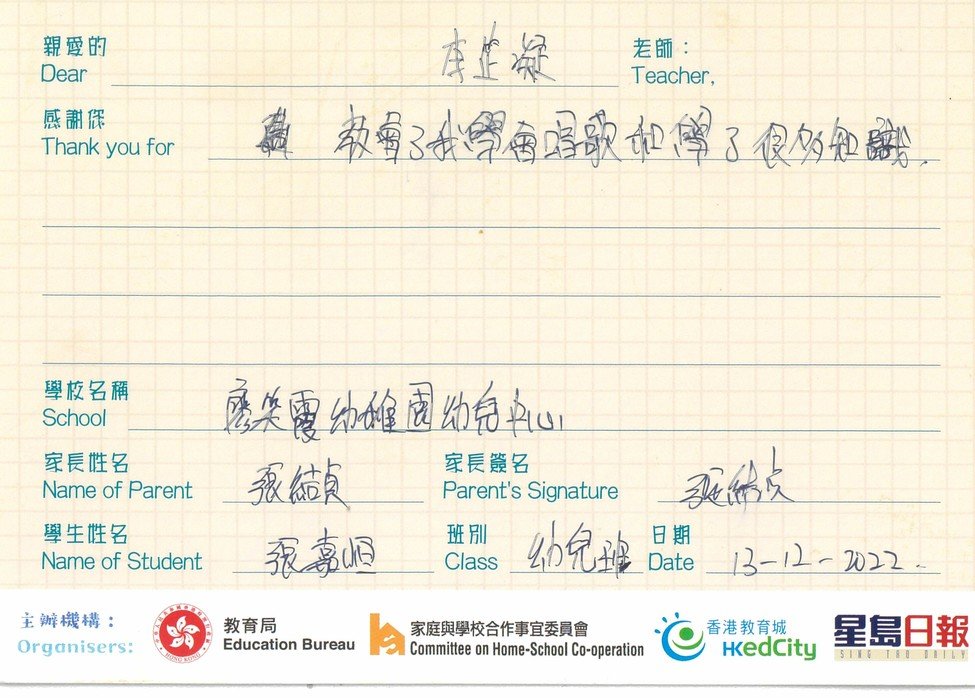 親愛的 老師：
Dear Teacher,
感謝您 教會了我學會唱歌和學了很多知識.
Thank you for
學校名稱 幼稚園幼兒中心
School
家長姓名 張 家長簽名 張
Name of Parent Parent's Signature
學生姓名 張嘉恒 班別 幼兒班 日期 13-12-2022.
Name of Student Class Date
主辦機構：
Organisers:
教育局
Education Bureau
家庭與學校合作事宜委員會
Committee on Home-School Co-operation
香港教育城
HKedCity
星島日報
SING TAO DAILY